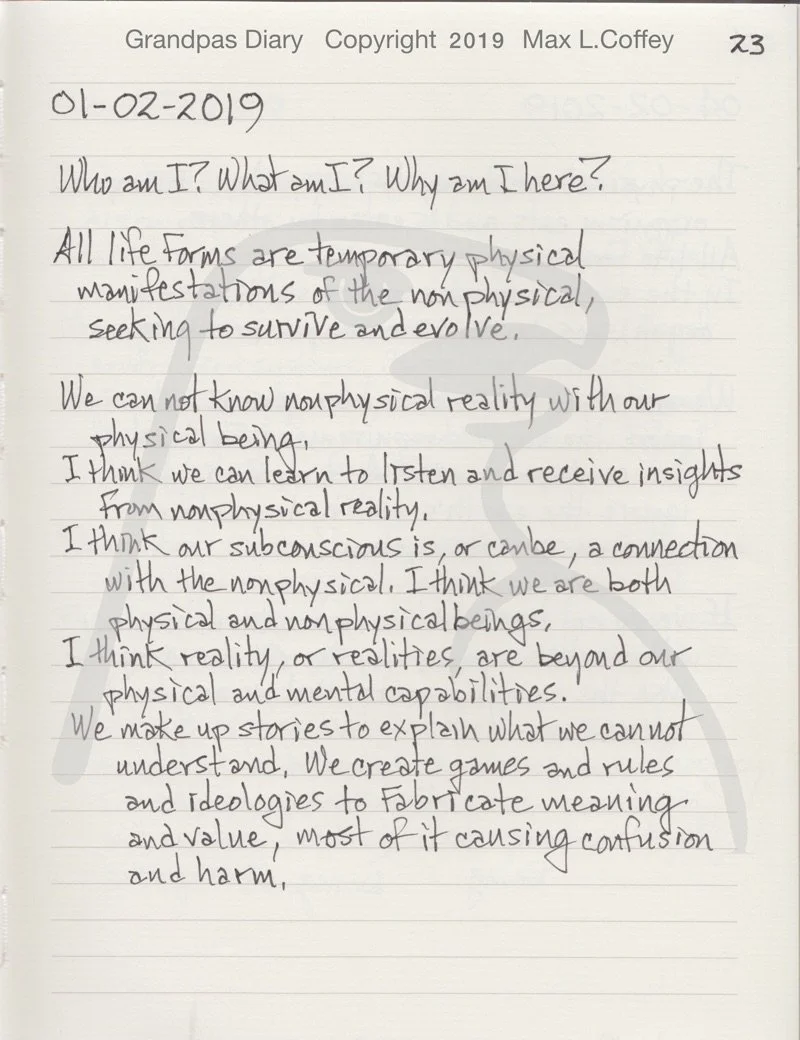 Grandpas Diary Copyright 2019 Max L.Coffey 23
01-02-2019
Who am I? What am I? Why am I here?
All life forms are temporary physical
manifestations of the nonphysical,
seeking to survive and evolve.
We can not know nonphysical reality with our
physical being.
I think we can learn to listen and receive insights
from nonphysical reality.
I think our subconscious is, or can be, a connection
with the nonphysical. I think we are both
physical and nonphysical beings.
I think reality, or realities, are beyond our
physical and mental capabilities.
We make up stories to explain what we cannot
understand. We create games and rules
and ideologies to fabricate meaning
and value, most of it causing confusion
and harm.